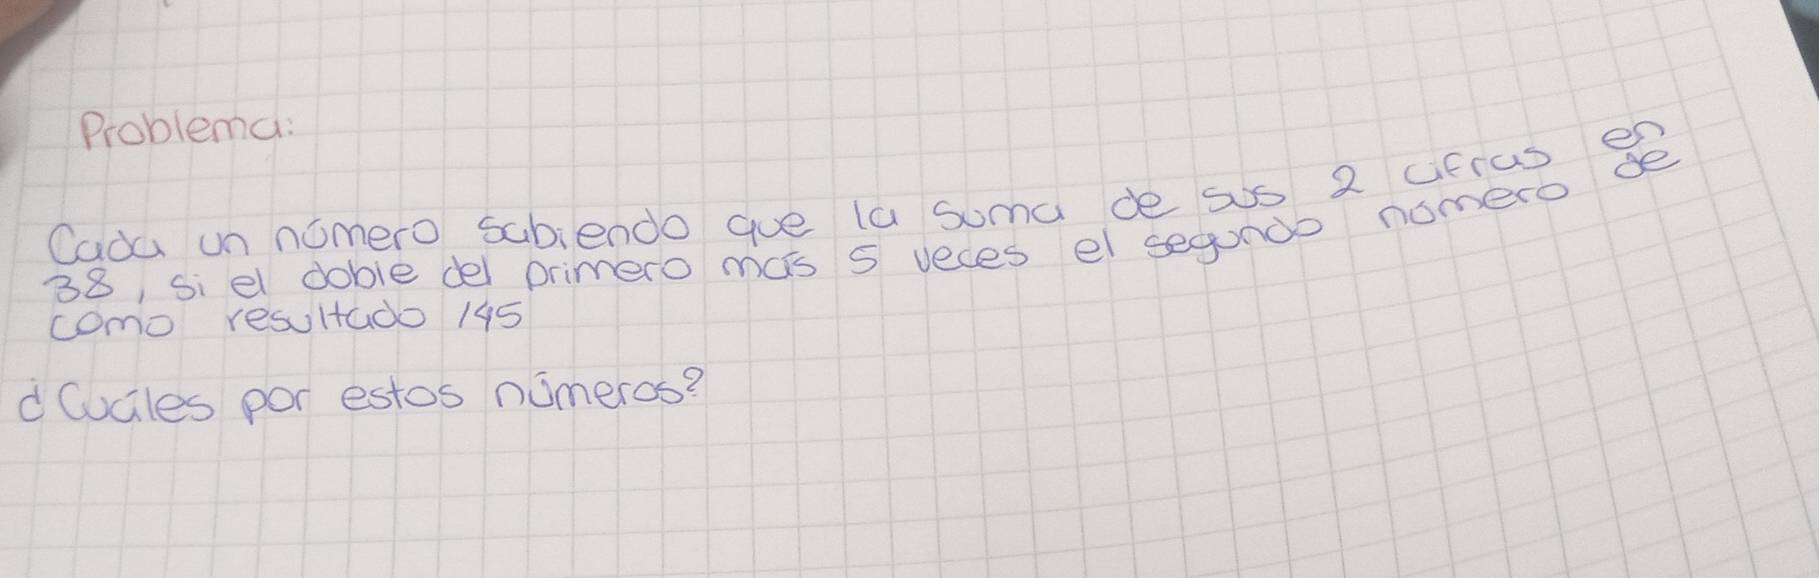 Problema:
Cada un número sabiendo que la suma de sus 2 cifras es
38, si el doble del primero más 5 veces el segundo número de
como resultado 145
¿Cuáles por estos números?